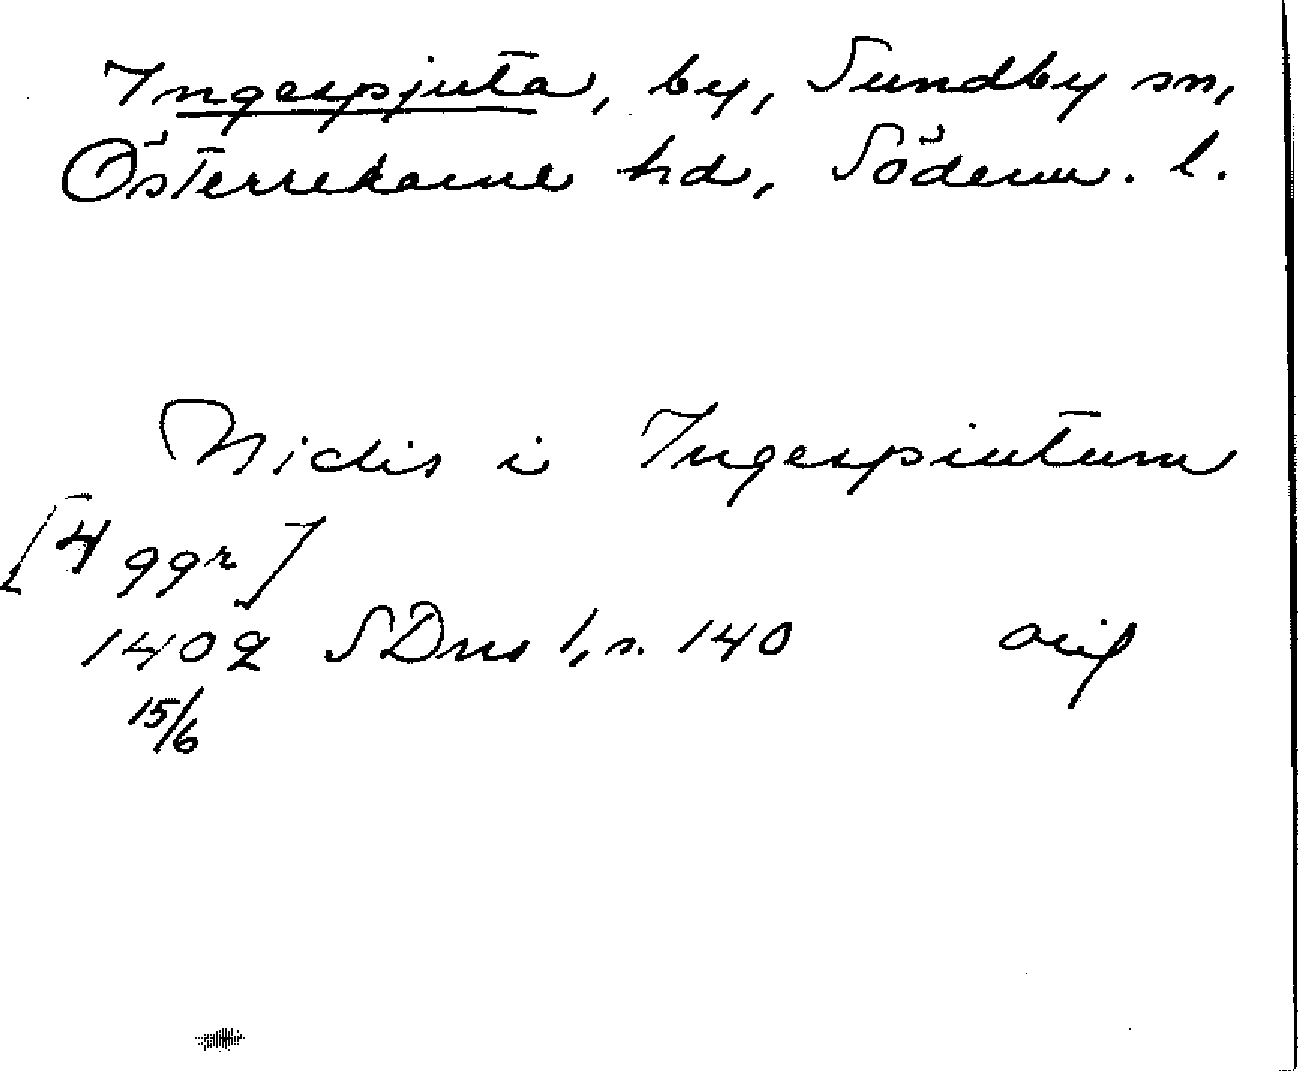 Ingespjuta, by, Sundby sn,
Österrekarne hd, Söderm. l.
Niclis i Ingespiutum
[4 ggr]
1402 SDns 1, s. 140 orig
15/6